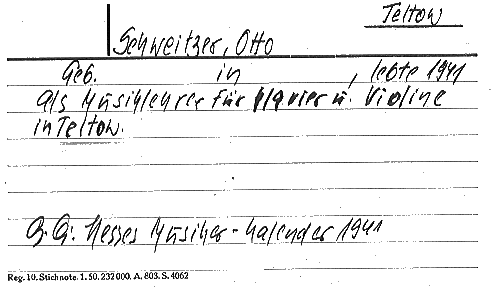 Teltow
Schweitzer, Otto
Geb. in , lebte 1941
als Musiklehrer für Klavier u. Violine
in Teltow.
Hesses Musiker-Kalender 1941
Reg. 10. Stichnote. 1. 50. 232000. A. 803. S. 4062